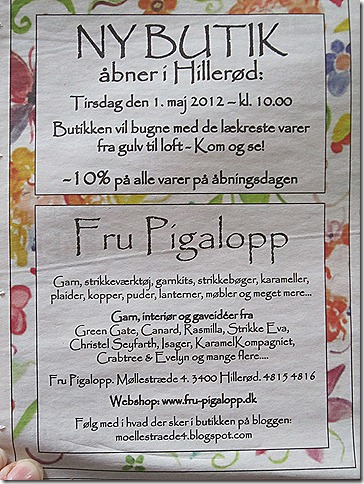 NY BUTIK
åbner i Hillerød:
Tirsdag den 1. maj 2012 – kl. 10.00
Butikken vil bugne med de lækreste varer
fra gulv til loft - Kom og se!
-10% på alle varer på åbningsdagen
Fru Pigalopp
Garn, strikkeværktøj, garnkits, strikkebøger, karameller,
plaider, kopper, puder, lanterner, møbler og meget mere...
Garn, interiør og gaveidéer fra
Green Gate, Canard, Rasmilla, Strikke Eva,
Christel Seyfarth, Isager, KaramelKompagniet,
Crabtree & Evelyn og mange flere....
Fru Pigalopp. Møllestræde 4. 3400 Hillerød. 4815 4816
Webshop: www.fru-pigalopp.dk
Følg med i hvad der sker i butikken på bloggen:
moellestraede4.blogspot.com